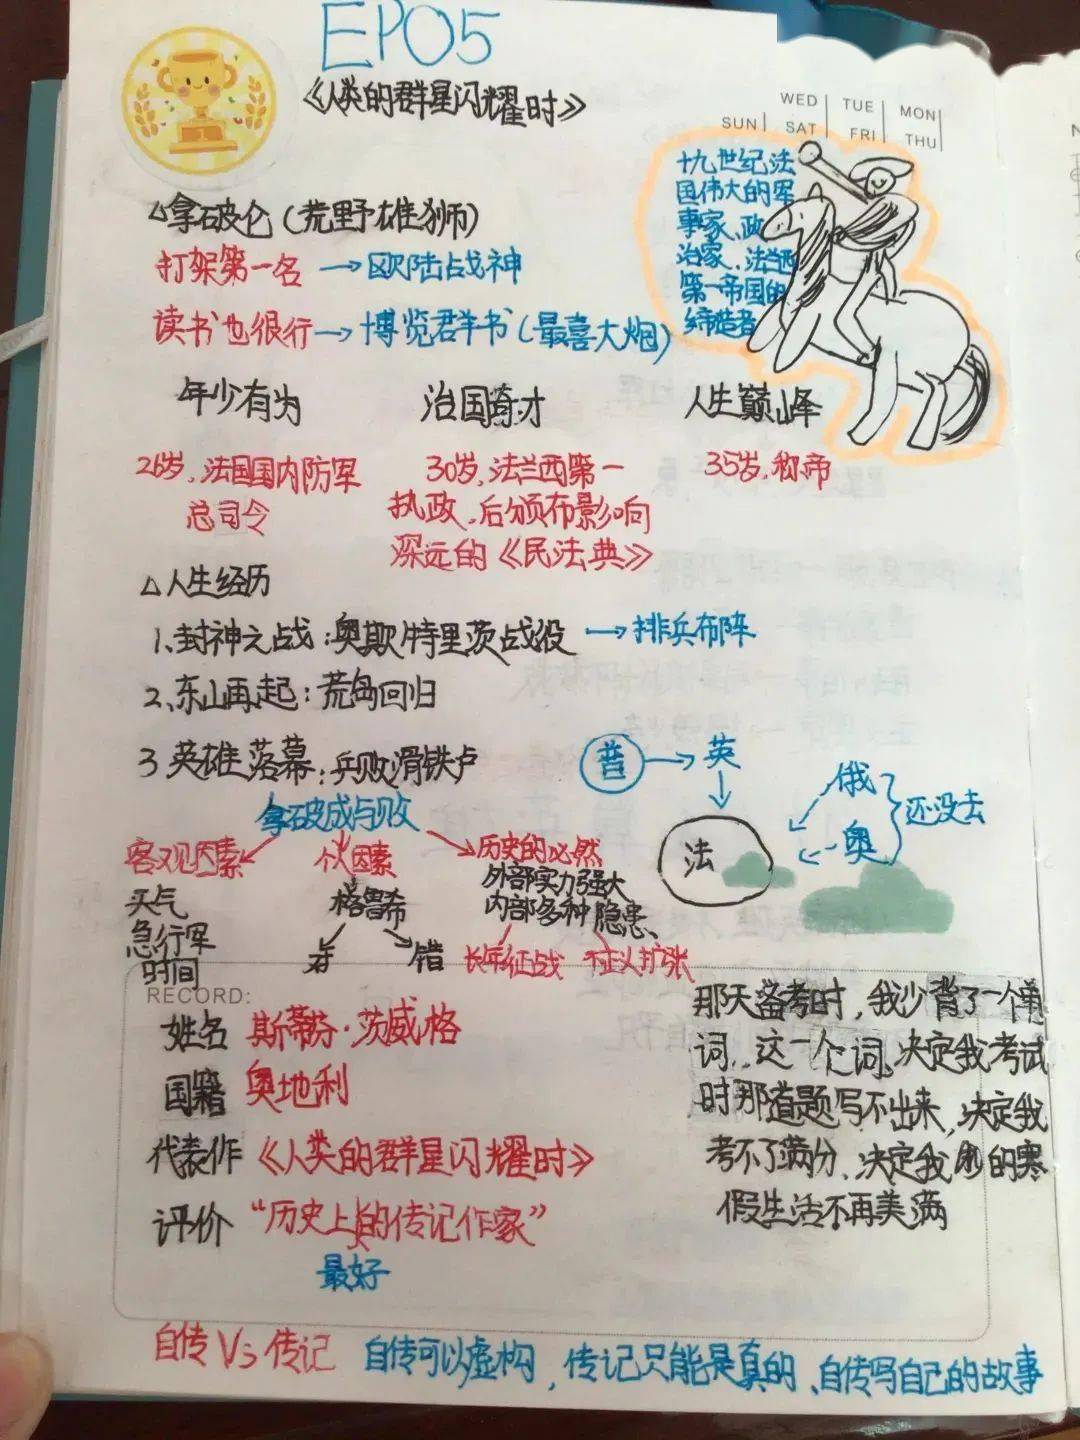 EP05
《人类的群星闪耀时》
WED TUE MON
SUN SAT FRI THU
十九世纪法
国伟大的军
事家、政
治家、法兰西
第一帝国的
缔造者
△拿破仑(荒野雄狮)
打架第一名→欧陆战神
读书也很行→博览群书(最喜大烟)
年少有为 治国奇才 人生巅峰
26岁,法国国内防军
总司令
30岁,法兰西第一
执政,后颁布影响
深远的《民法典》
35岁,称帝
△人生经历
1、封神之战:奥斯特里茨战役→排兵布阵
2、东山再起:荒岛回归
3 英雄落幕:兵败滑铁卢
普→英
法
俄
奥
还没去
拿破成与败
客观因素
天气
急行军
时间
个人因素
格鲁希
对 错
历史的必然
外部实力强大
内部多种隐患、
长年征战 不正义扩张
RECORD:
姓名 斯蒂芬·茨威格
国籍 奥地利
代表作《人类的群星闪耀时》
评价 "历史上的传记作家"
最好
那天备考时,我少背了一个单
词,这一个词、决定我考试
时那道题写不出来,决定我
考不了满分、决定我的寒
假生活不再美满
自传 Vs 传记 自传可以虚构,传记只能是真的、自传写自己的故事